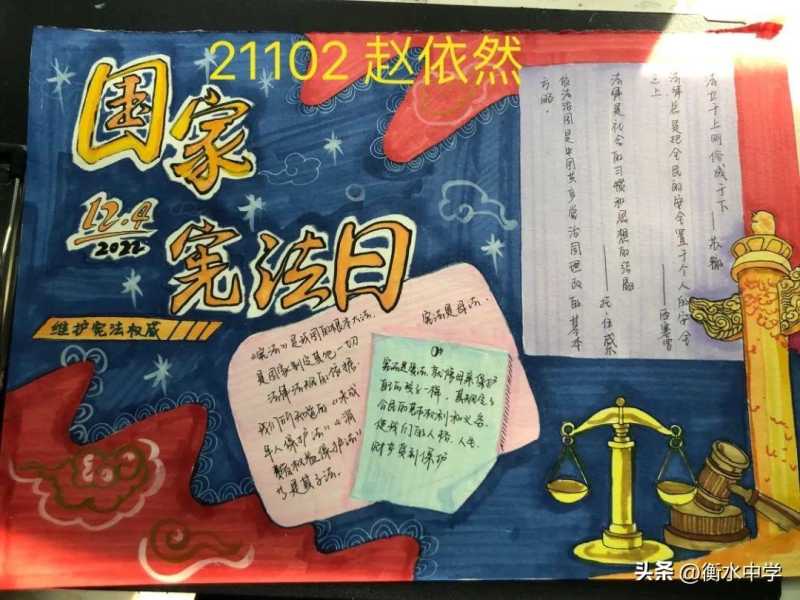 21102 赵依然
国家
12.4
2022
宪法日
维护宪法权威
法立于上则俗成于下——苏辙
法律总是把全民的安全置于个人的安全
之上 ——西塞罗
法律是社会的习惯和思想的结晶
——托·伍威尔
依法治国是中国共产党治国理政的基本
方略。
宪法是母法。
《宪法》是我国的根本大法。
是国家制定其他一切
法律法规的依据。
我们所知道的《未成
年人保护法》《消
费者权益保护法》
宪法是母法,就像母亲保护
自己的孩子一样,
公民的基本权利和义务。
使我们的人格、人生、
财产受到保护
头条 @衡水中学